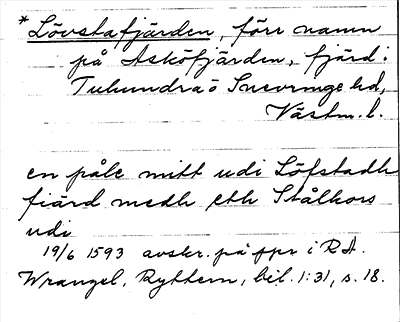 * Lövstafjärden, förr namn
på Asköfjärden, fjärd i
Tuhundra o Snevringe hd,
Västm. l.
en påle mitt udi Löfstadh
fiärd medh eth Stålkors
udi
19/6 1593 avskr. på ppr i RA.
Wrangel, Ryttern, bil. 1:31, s. 18.